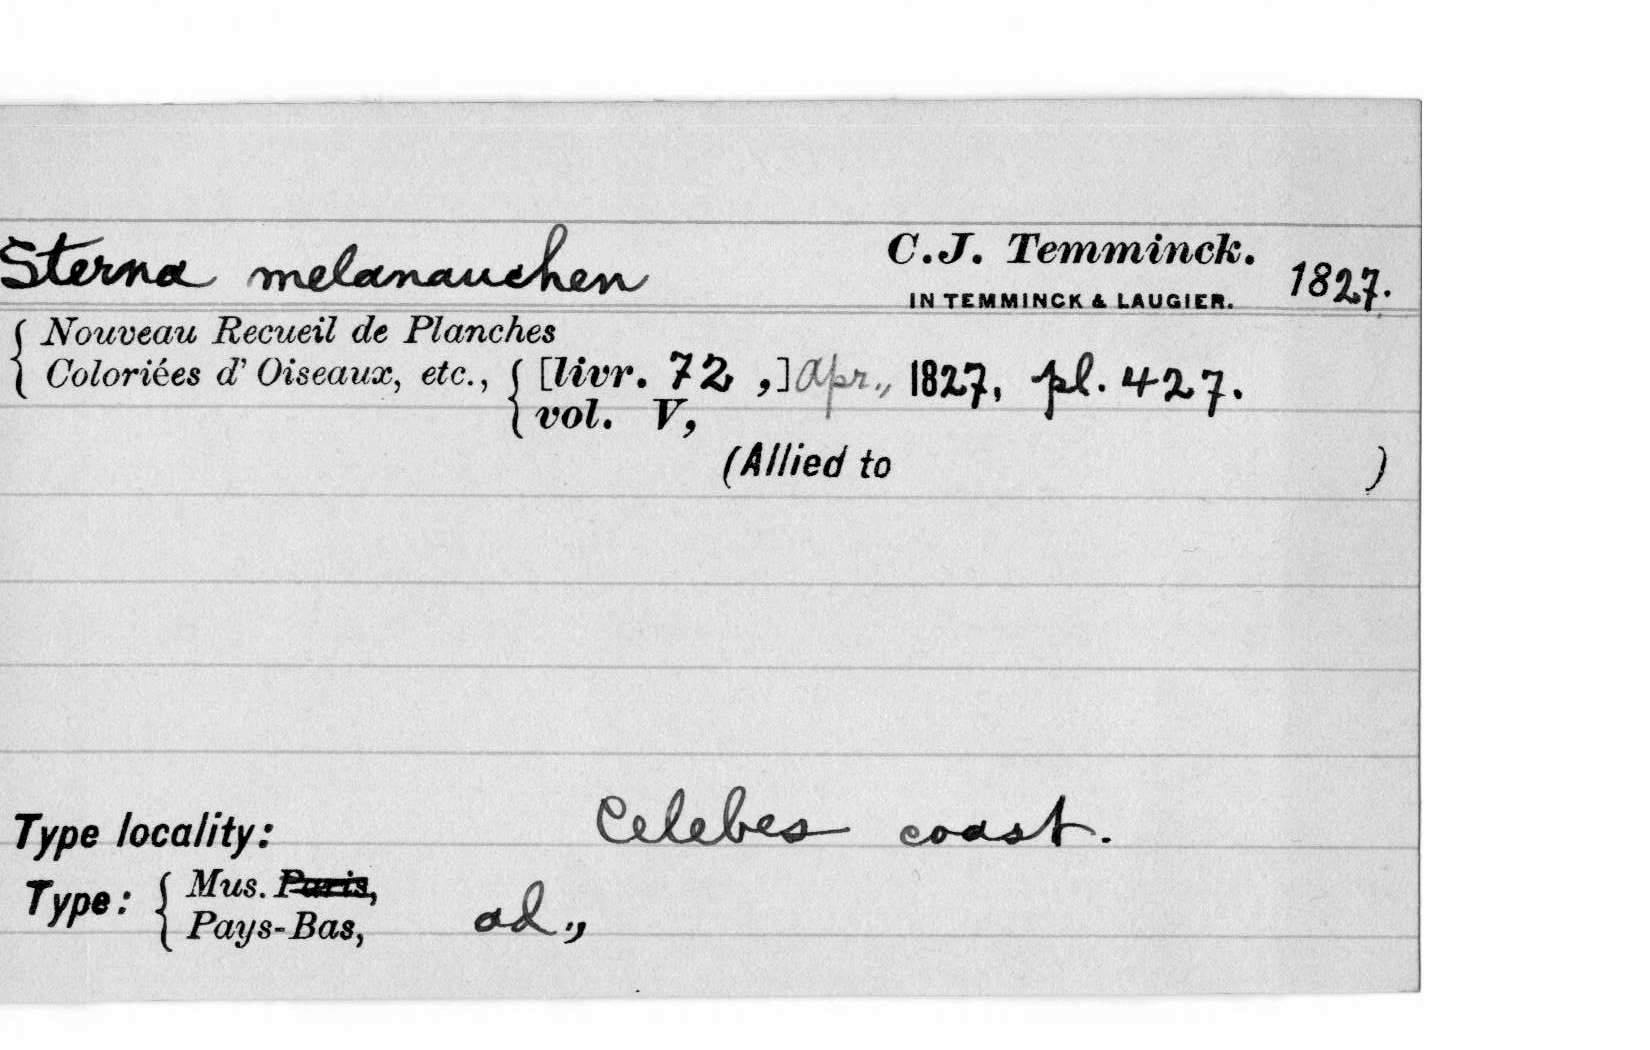 Sterna melanauchen C.J. Temminck. 1827.
IN TEMMINCK & LAUGIER.
Nouveau Recueil de Planches
Coloriées d' Oiseaux, etc., [livr. 72 ,] Apr., 1827, pl. 427.
vol. V,
(Allied to )
Type locality: Celebes coast.
Type: Mus. Paris,
Pays-Bas, ad.,